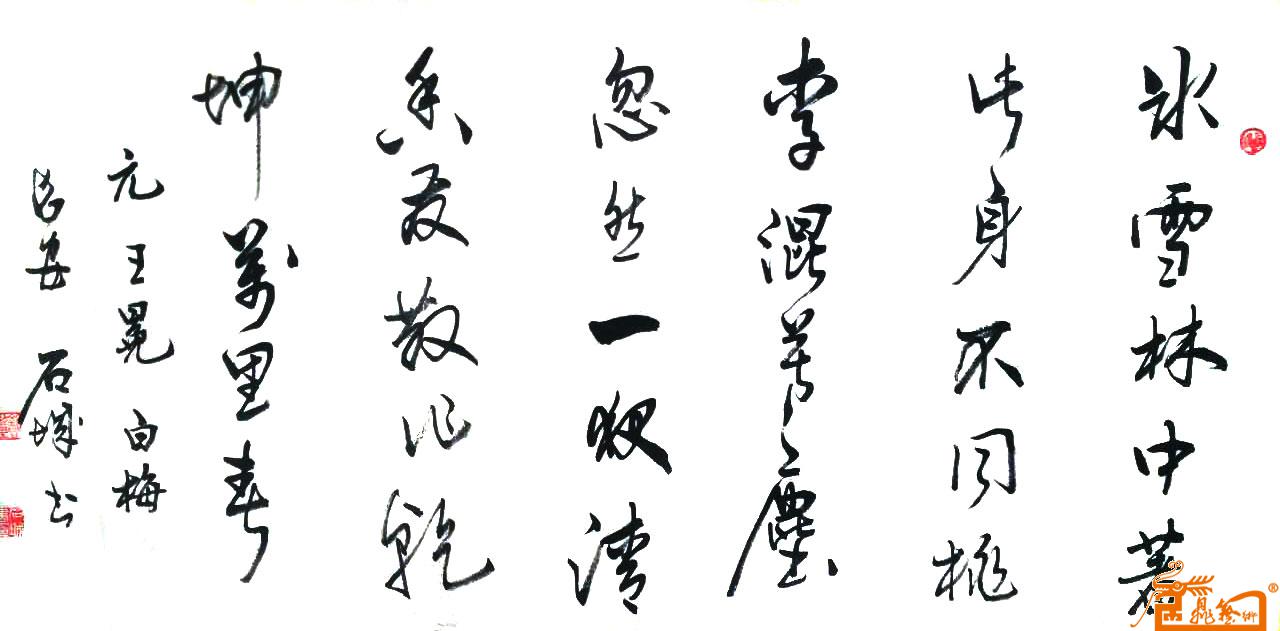 冰雪林中著
此身不同桃
李混芳塵
忽然一夜清
香发散作乾
坤萬里春
元 王冕 白梅
长安 石城 书